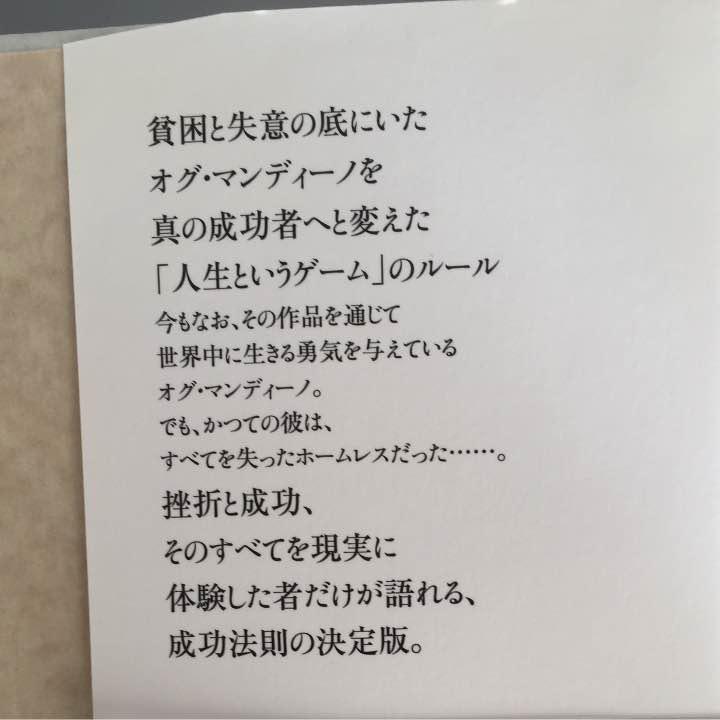 貧困と失意の底にいた
オグ・マンディーノを
真の成功者へと変えた
「人生というゲーム」のルール
今もなお、その作品を通じて
世界中に生きる勇気を与えている
オグ・マンディーノ。
でも、かつての彼は、
すべてを失ったホームレスだった……。
挫折と成功、
そのすべてを現実に
体験した者だけが語れる、
成功法則の決定版。